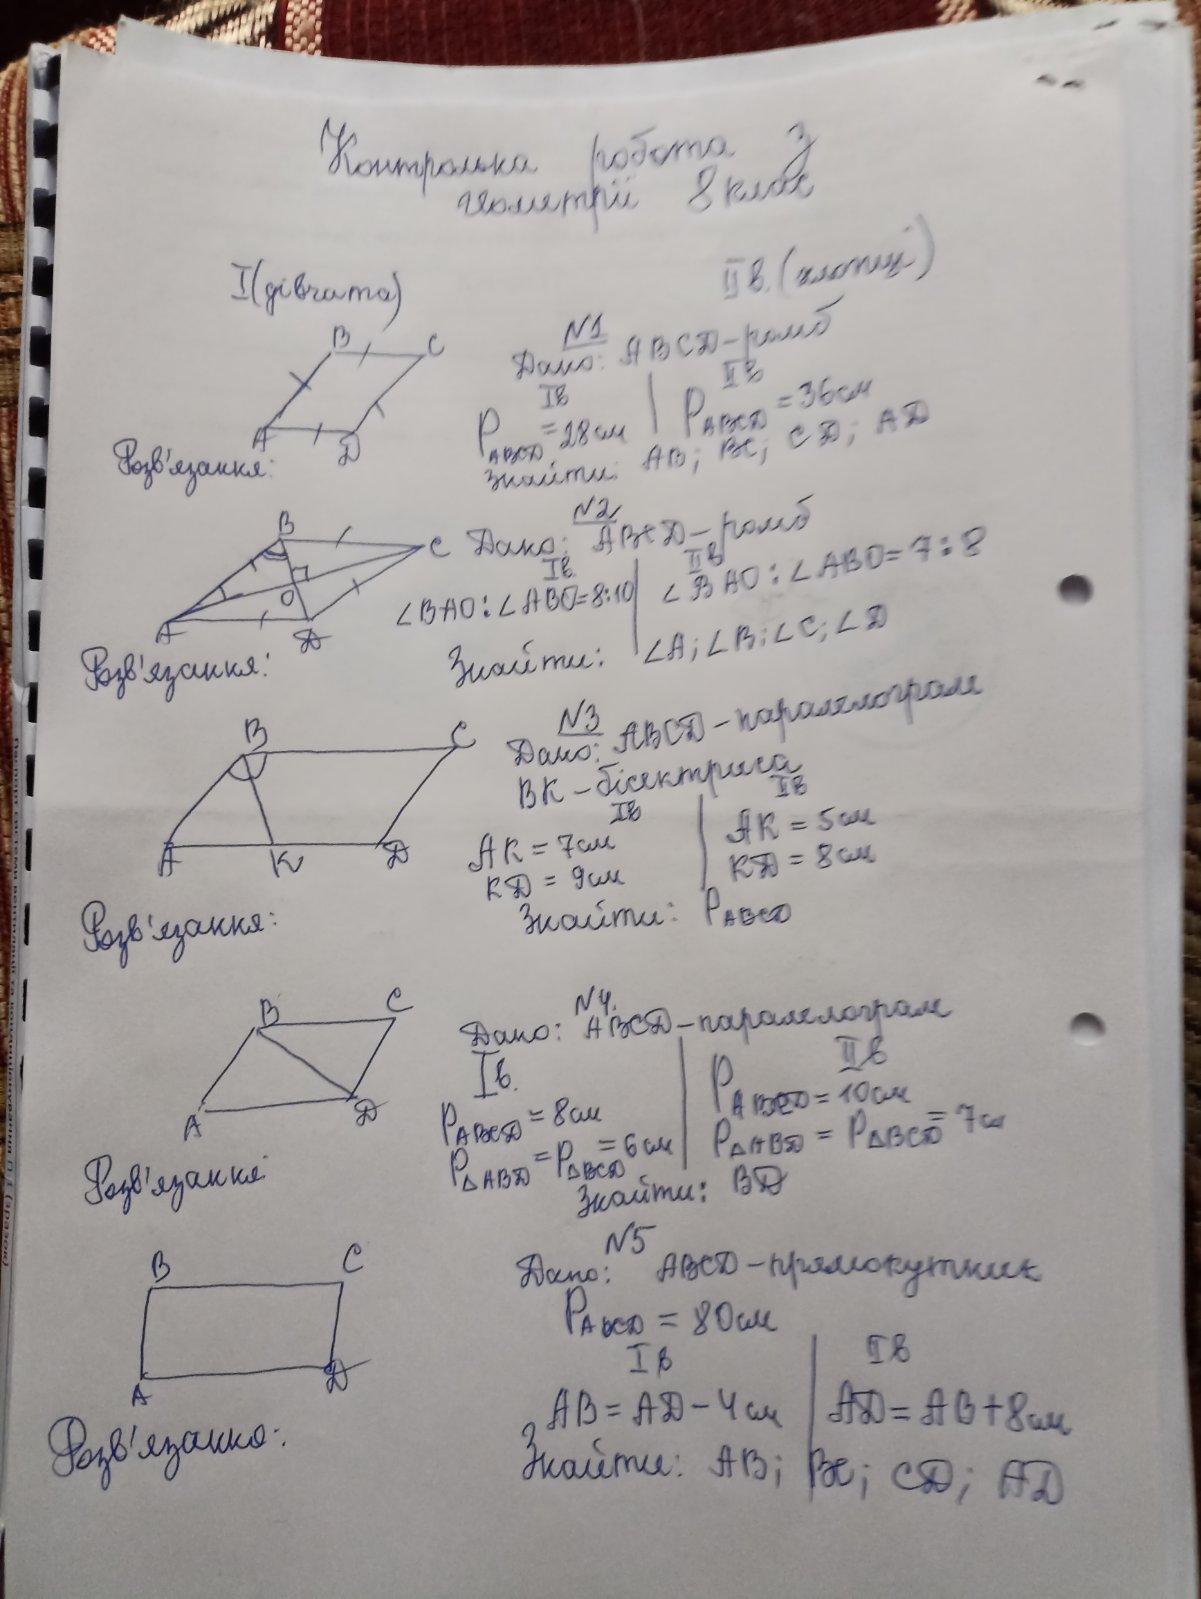 Контрольна робота з
геометрії 8 клас
I (дівчата)
II в. (хлопці)
B C
A D
№1
Дано: ABCD - ромб
I в
II в
P ABCD = 28 см
P ABCD = 36 см
Знайти: AB; BC; CD; AD
Розв'язання:
B C
O
A D
№2
Дано: ABCD - ромб
I в
II в
∠BAO : ∠ABO = 8:10
∠BAO : ∠ABO = 7:8
Знайти: ∠A; ∠B; ∠C; ∠D
Розв'язання:
B C
A K D
№3
Дано: ABCD - паралелограм
BK - бісектриса
I в
II в
AK = 7 см
AK = 5 см
KD = 9 см
KD = 8 см
Знайти: P ABCD
Розв'язання:
B C
A D
№4.
Дано: ABCD - паралелограм
I в.
II в
P ABCD = 8 см
P ABCD = 10 см
P ΔABD = P ΔBCD = 6 см
P ΔABD = P ΔBCD = 7 см
Знайти: BD
Розв'язання:
B C
A D
№5
Дано: ABCD - прямокутник
P ABCD = 80 см
I в
II в
AB = AD - 4 см
AD = AB + 8 см
Знайти: AB; BC; CD; AD
Розв'язанно: